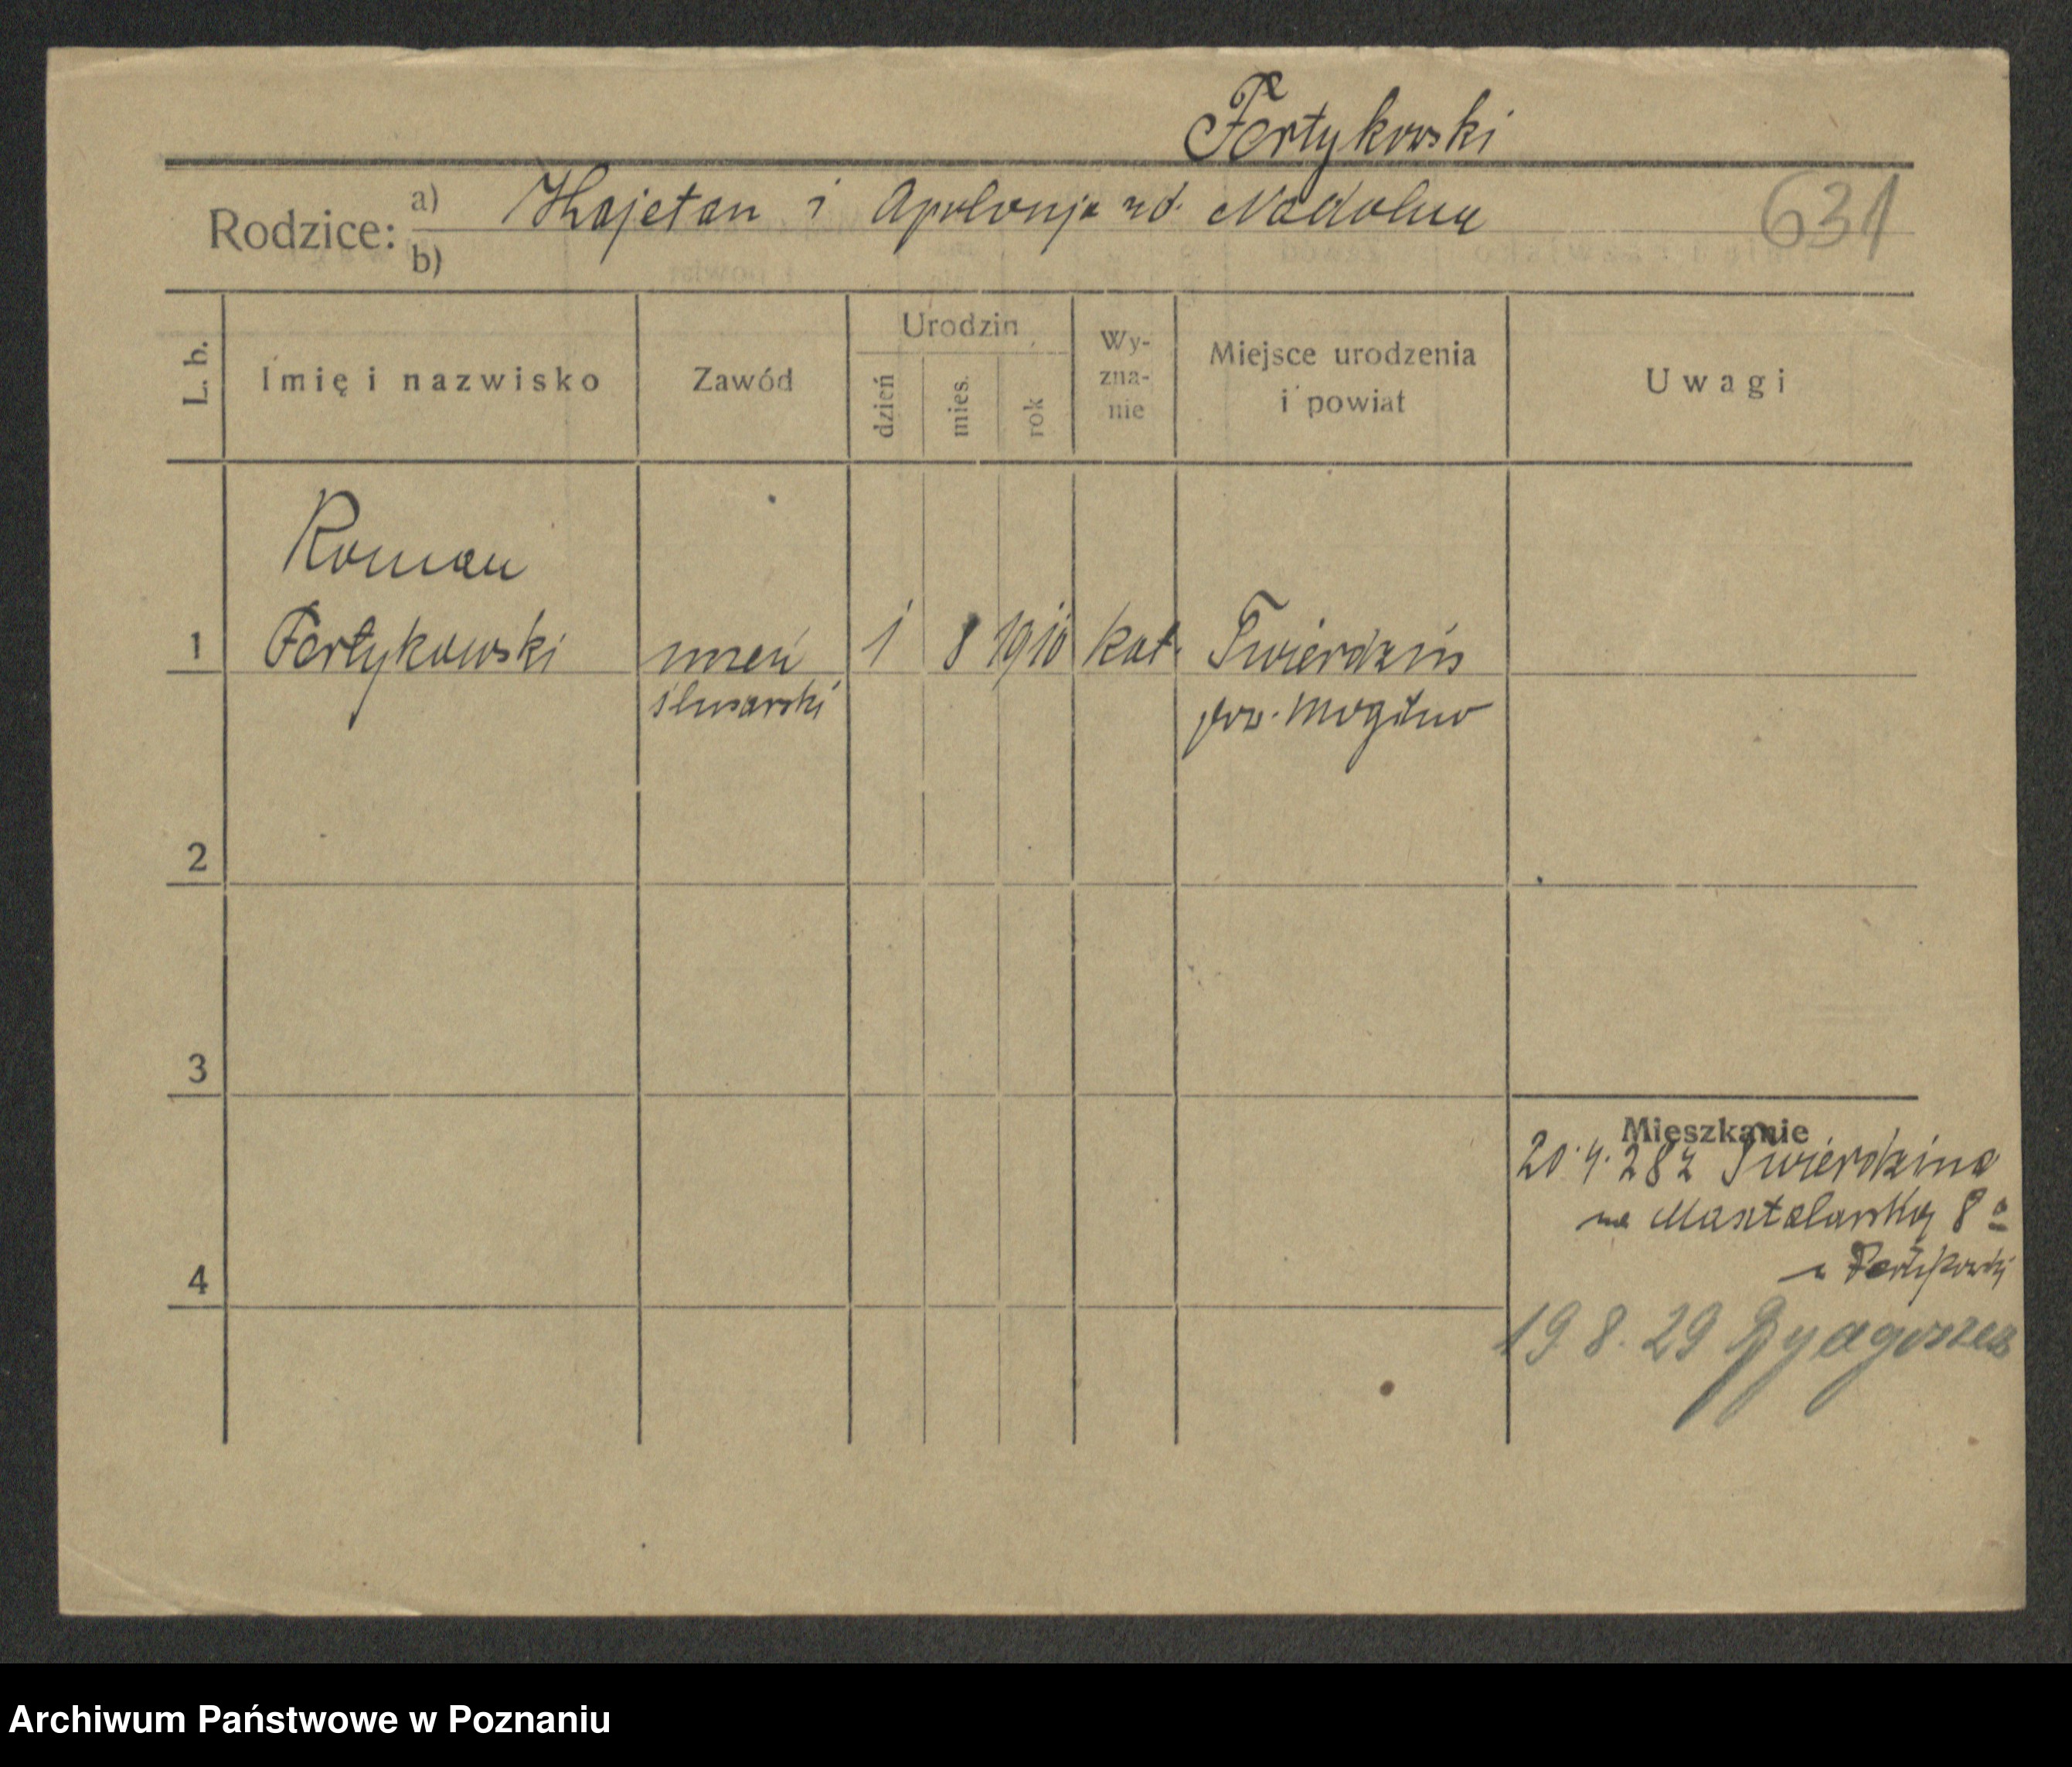 Fertykowski
Rodzice: a) Kajetan i Apolonja zd. Nadolna
b)
631
L. b. Imię i nazwisko Zawód Urodzin dzień mies. rok Wyznanie Miejsce urodzenia i powiat Uwagi
Roman
1 Fertykowski uczeń 1 8 1910 kat. Twierdzin
ślusarski pow. Mogilno
2
3
Mieszkanie
20.4.28 z Twierdzina
na Masztalarską 8a
u Fertykowski
4
19 8. 29 Bydgoszcz
Archiwum Państwowe w Poznaniu